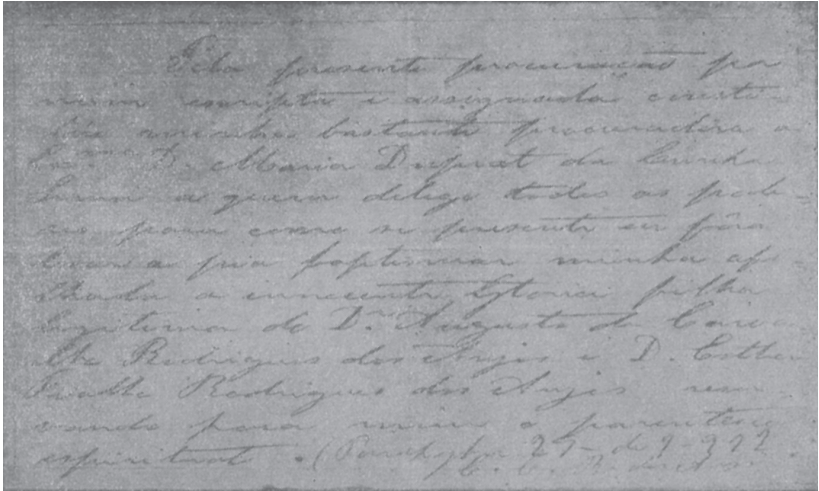 Pela presente procuração por
mim escripta e assignada consti-
túo minha bastante procuradora a
D. Maria Duprat da Cunha
Lima a quem delego todos os pode-
res para como se presente eu fôra
levar a pia baptismar minha afi-
lhada a innocente Gloria filha
legitima do Dr. Augusto de Carva-
lho Rodrigues dos Anjos e D. Esther
Fialho Rodrigues dos Anjos reser-
vando para mim o parentesco
espiritual. (Parahyba 27- de 9-